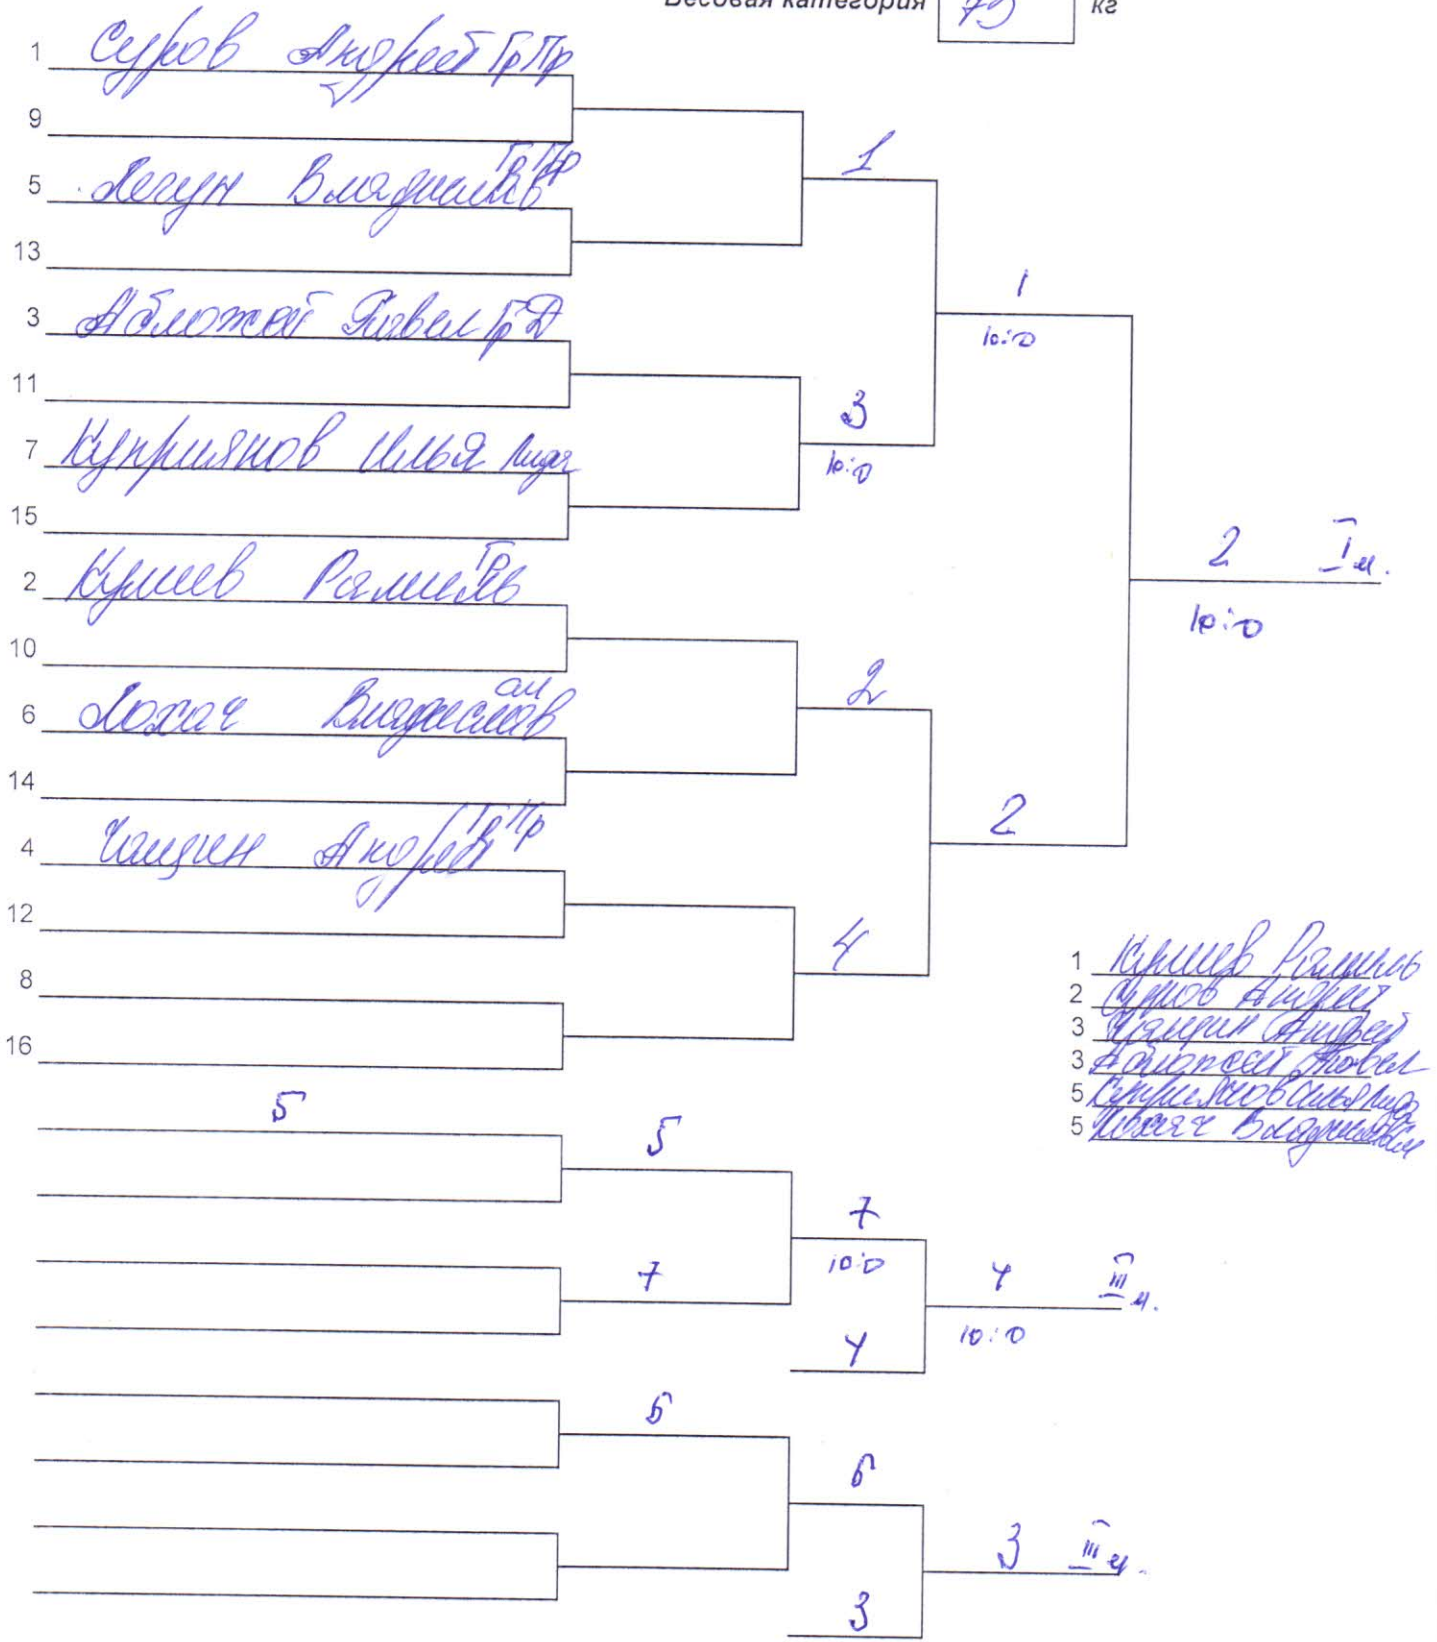 Весовая категория 73 кг
1 Суров Андрей Гр Пр
9
5 Легун Владислав Гр Пр
13
3 Абложей Павел Гр Д
11
7 Куприянов Илья Лида
15
2 Кулиев Рамиль Гр
10
6 Лохач Владислав Сл
14
4 Чащин Андрей Гр Пр
12
8
16
1
3
10:0
1
10:0
2
4
2
2 I м.
10:0
1 Кулиев Рамиль
2 Суров Андрей
3 Чащин Андрей
3 Абложей Павел
5 Куприянов Илья Лида
5 Лохач Владислав Сл
5
5
7
7
10:0
4
4 III м.
10:0
6
6
3
3 III м.